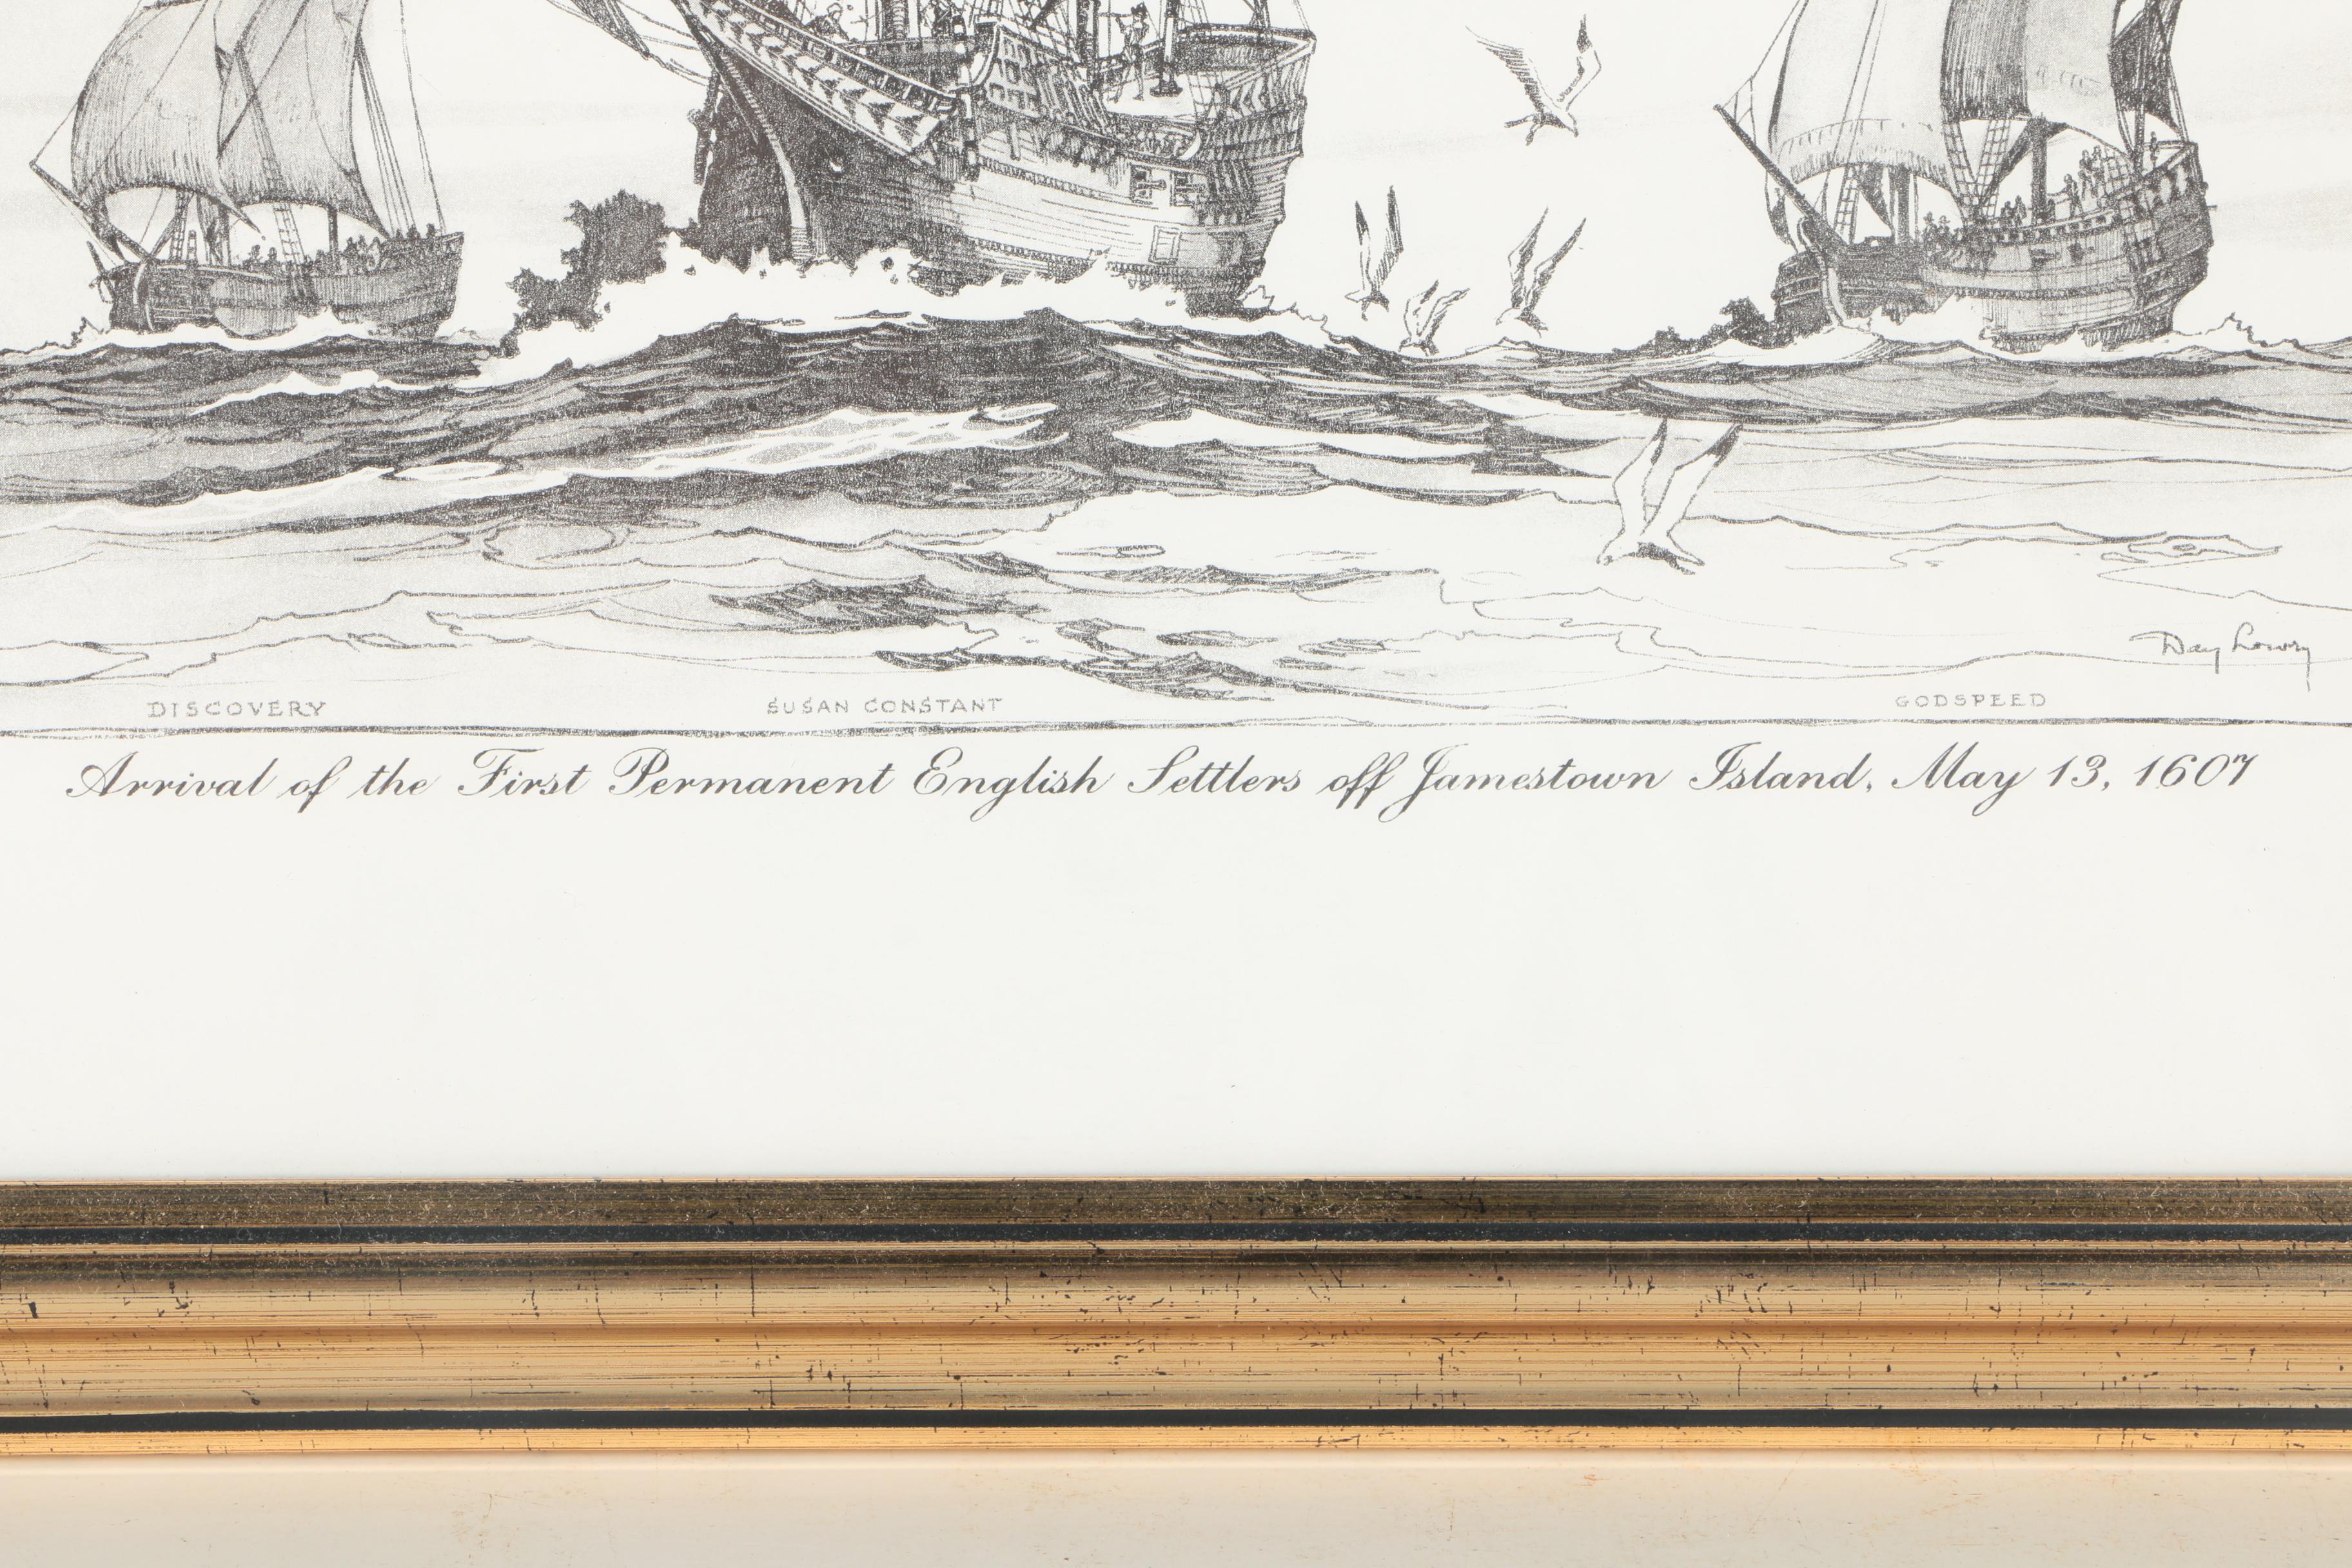 Day Lowry
DISCOVERY SUSAN CONSTANT GODSPEED
Arrival of the First Permanent English Settlers off Jamestown Island, May 13, 1607